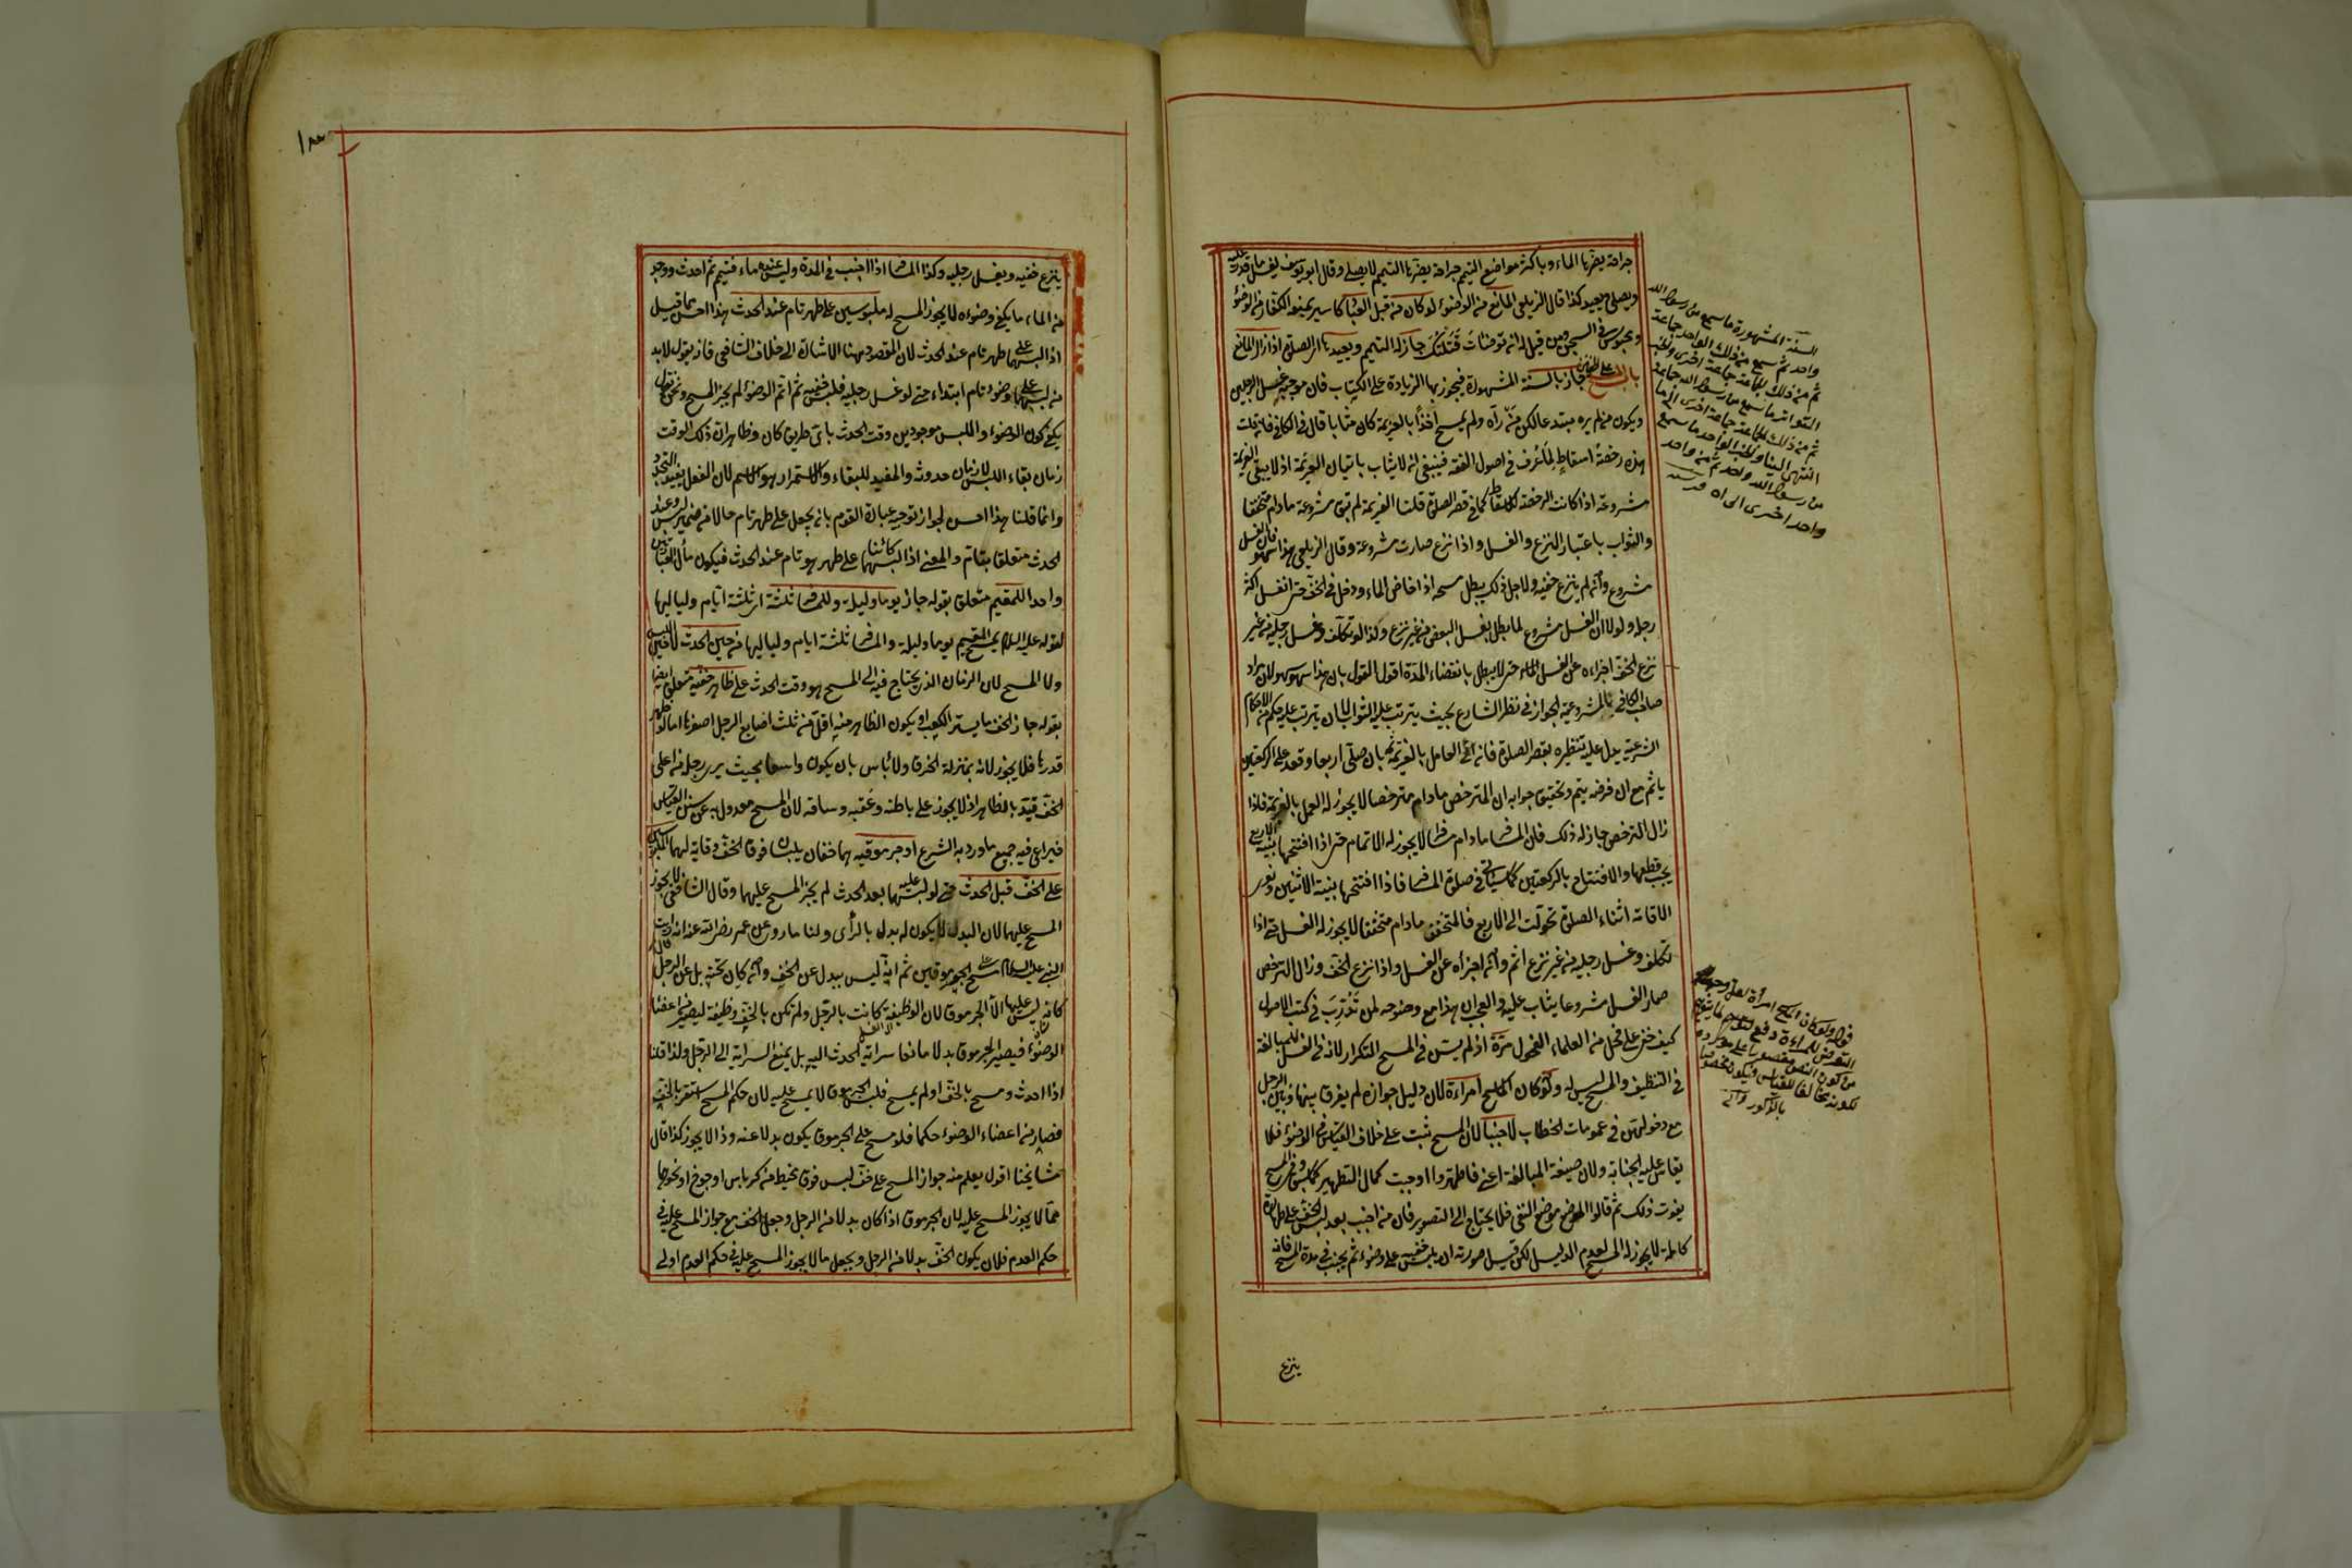 جراحة يضرها الماء وباكثر مواضع التيمم جراحة يضرها التيمم لا يصلي وقال ابو يوسف يغسل ما قدر عليه
ويصلي ويعيد كذا قال الزيلعي المانع من الوضوء لو كان من قبل العباد كاسير يمنعه الكفار من الوضوء
ومحبوس في السجن ومن قيل له ان توضأت قتلتك جاز له التيمم ويعيد ها اى الصلوة اذا زال المانع
باب المسح على الخفين جاز بالسنة المشهورة فيجوز بها الزيادة على الكتاب فان موجبه غسل الرجلين
ويكون من لم يره مبتدعا لكن من رآه ولم يمسح اخذا بالعزيمة كان مثابا قال في الكافي فان قلت
هذه رخصة اسقاط لما عرف في اصول الفقه فينبغي ان لا يثاب باتيان العزيمة اذ لا يبقى العزيمة
مشروعة اذا كانت الرخصة للاسقاط كما في قصر الصلوة قلنا العزيمة لم تبق مشروعة مادام متخففا
والثواب باعتبار النزع والغسل واذا نزع صارت مشروعة وقال الزيلعي هذا سهو فان الغسل
مشروع وان لم ينزع خفيه ولاجل ذلك يبطل مسحه اذا خاض الماء ودخل في الخف حتى انغسل اكثر
رجله ولولا ان الغسل مشروع لما بطل بغسل البعض من غير نزع وكذا لو تكلف وغسل رجليه من غير
نزع الخف اجزاه عن الغسل حتى لا يبطل بانقضاء المدة اقول القول بان هذا سهو سهو لان مراد
صاحب الكافي بالمشروعية الجواز في نظر الشارع بحيث يترتب عليه الثواب لا ان يترتب عليه حكم من الاحكام
الشرعية يدل عليه تنظيره بقصر الصلوة فانه اى العامل بالعزيمة ثمه بان صلى اربعا وقعد على الركعتين
ياثم مع ان فرضه يتم وتحقيق جوابه ان المترخص مادام مترخصا لا يجوز له العمل بالعزيمة فاذا
زال الترخص جاز له ذلك فان المسافر مادام مسافرا لا يجوز له الاتمام حتى اذا افتتحها بنية الاربع
يجب قطعها والافتتاح بالركعتين كما سيأتى في صلوة المسافر فاذا افتتحها بنية الاثنين ونوى
الاقامة اثناء الصلوة تحولت الى الاربع فالمتخفف مادام متخففا لا يجوز له الغسل حتى اذا
تكلف وغسل رجليه من غير نزع اثم وان اجزاه عن الغسل واذا نزع الخف وزال الترخص
صار الغسل مشروعا يثاب عليه والعجب ان هذا مع وضوحه لمن تدرب في كتب الاصول
كيف خفى على فحل من العلماء الفحول مرة اذ لم يسن في المسح التكرار لانه في الغسل للمبالغة
في التنظيف والمسح ليس له ولو كان الماسح امراءة لان دليل جوازه لم يفرق بينها وبين الرجل
مع دخولهن في عمومات الخطاب لا جنبا لان المسح ثبت على خلاف القياس في الوضوء فلا
يقاس عليه الجنابة ولان صيغة المبالغة اعنى فاطهروا اوجبت كمال التطهير وفي المسح
يفوت ذلك ثم قالوا الموضع موضع النفى فلا يحتاج الى التصوير فان من اجنب بعد لبس الخف على طهارة
كاملة لا يجوز له المسح لعدم الدليل لكن قيل صورته ان يلبس خفيه على وضوء ثم يجنب في مدة المسح فانه
السنة المشهورة ما سمع من رسول الله
واحد ثم سمع من ذلك الواحد جماعة
ثم من ذلك الجماعة جماعة اخرى
التواتر ما سمع من رسول الله جماعة
ثم من ذلك الجماعة جماعة اخرى الى ما
انتهى الينا وخبر الواحد ما سمع
من رسول الله واحد ثم من واحد
واحد اخرى الى اه
قوله ولو كان الماسح امرأة
التعرض للمراءة دفع
من كون النص مقصورا على مورده
لكونه مخالفا للقياس ويكون مخصوصا
بالذكور
ينزع
ينزع خفيه ويغسل رجليه وكذا المسافر اذا اجنب في المدة وليس عنده ماء فتيمم ثم احدث ووجد
من الماء ما يكفى وضوءه لا يجوز المسح له ملبوسين على طهر تام عند الحدث هذا احسن مما قيل
اذا لبسهما على طهر تام عند الحدث لان المقصود ههنا الاشارة الى خلاف الشافعى فانه يقول لابد
من لبسهما على وضوء تام ابتداء حتى لو غسل رجليه فلبس خفيه ثم اتم الوضوء لم يجز المسح ونحن نقول
يكفى كون الوضوء واللبس موجودين وقت الحدث باى طريق كان وظاهر ان ذلك الوقت
زمان بقاء اللبس لا زمان حدوثه والمفيد للبقاء والاستمرار هو الاسم لان الفعل يفيد التجدد
وانما قلنا هذا احسن لجواز توجيه عبارة القوم بان يجعل على طهر تام حالا من ضمير لبس وعند
الحدث متعلقا بتام والمعنى اذا لبسهما كائنا على طهر هو تام عند الحدث فيكون مآل العبارتين
واحدا للمقيم متعلق بقوله جاز يوما وليلة وللمسافر ثلثة اى ثلثة ايام ولياليها
لقوله عليه السلام يمسح المقيم يوما وليلة والمسافر ثلثة ايام ولياليها من حين الحدث لا حين اللبس
ولا المسح لان الزمان الذى يحتاج فيه الى المسح هو وقت الحدث على ظاهر خفيه متعلق ايضا
بقوله جاز الخف ما يستر الكعب او يكون الظاهر منه اقل من ثلث اصابع الرجل اصغرها اما لو ظهر
قدرها فلا يجوز لانه بمنزلة الخرق ولا بأس بان يكون واسعا بحيث يرى رجله من اعلى
الخف قيد بالظاهر اذ لا يجوز على باطنه وعقبه وساقه لان المسح معدول به عن سنن القياس
فيراعى فيه جميع ما ورد به الشرع او جرموقيه هما خفان يلبسان فوق الخف وقاية لهما الملبوسين
على الخف قبل الحدث حتى لو لبسهما عليه بعد الحدث لم يجز المسح عليهما وقال الشافعى لا يجوز
المسح عليهما لان البدل لا يكون له بدل بالرأى ولنا ما روى عن عمر رضى الله عنه انه قال رايت
النبى عليه السلام مسح على الجرموقين ثم انه ليس ببدل عن الخف وان كان تحته بل عن الرجل
كانه ليس عليها الا الجرموق لان الوظيفة كانت بالرجل ولم تكن بالخف وظيفة ليصير من اعضاء
الوضوء فيصير الجرموق بدلا مانعا سراية الحدث اليه بل يمنع السراية الى الرجل ولذا قلنا
اذا احدث ومسح بالخف او لم يمسح فلبس الجرموق لا يمسح عليه لان حكم المسح استقر بالخف
فصار من اعضاء الوضوء حكما فلو مسح على الجرموق يكون بدلا عنه وذا لا يجوز كذا قال
مشايخنا اقول يعلم منه جواز المسح على خف لبس فوق مخيط من كرباس او جوخ او نحوهما
مما لا يجوز المسح عليه لان الجرموق اذا كان بدلا من الرجل وجعل الخف مع جواز المسح عليه في
حكم العدم فلان يكون الخف بدلا من الرجل ويجعل ما لا يجوز المسح عليه في حكم العدم اولى